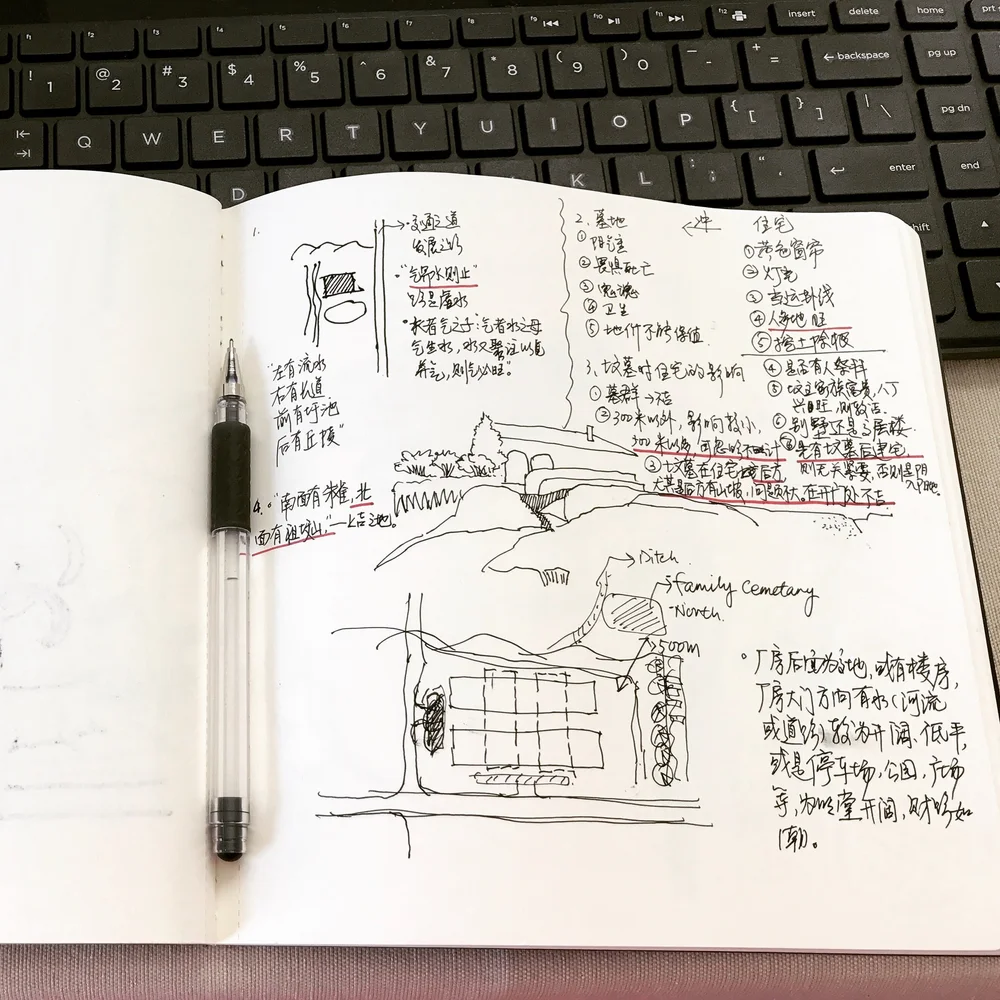 f1 f2 f3 f4 f5 f9 f10 f11 f12 insert delete home prt s
! 1 @ 2 # 3 $ 4 % 5 ^ 6 & 7 * 8 ( 9 ) 0 - + = backspace pg up
Q W E R T Y U I O P { [ } ] | \ pg dn
D K L : ; " ' enter end
shift
1.
交通之道
发展之路
"气界水则止"
路是虚水
水者气之子；气者水之母
气生水，水又聚注以
养气，则气必旺"。
"左有流水
右有长道
前有圩池
后有丘陵"
2. 墓地
① 阴气重
② 畏惧死亡
③ 鬼魂
④ 卫生
⑤ 地价不能保值
冲
住宅
① 黄色窗帘
② 灯
③
④ 人多地旺
⑤
3、坟墓对住宅的影响
① 墓群→
② 300米以外，影响较小，
500米以
③ 坟墓在住宅 后方
尤其是后方有山坡，问题不大。在开门处不吉
④ 是否有人祭拜
⑤ 坟主家族富贵，人丁
兴旺，则
⑥ 别墅还是高层楼
⑦ 先有坟墓后建宅
则无关紧要，否则是阴
4. "南面有 ，北
面有祖坟山"—上吉之地。
Ditch
family Cemetary
North
>500m
厂房后面为 地，或有楼房，
厂房大门方向有水（河流
或道路）较为开阔、低平，
或是停车场，公园，广场
等，为明堂开阔，财路如
潮。